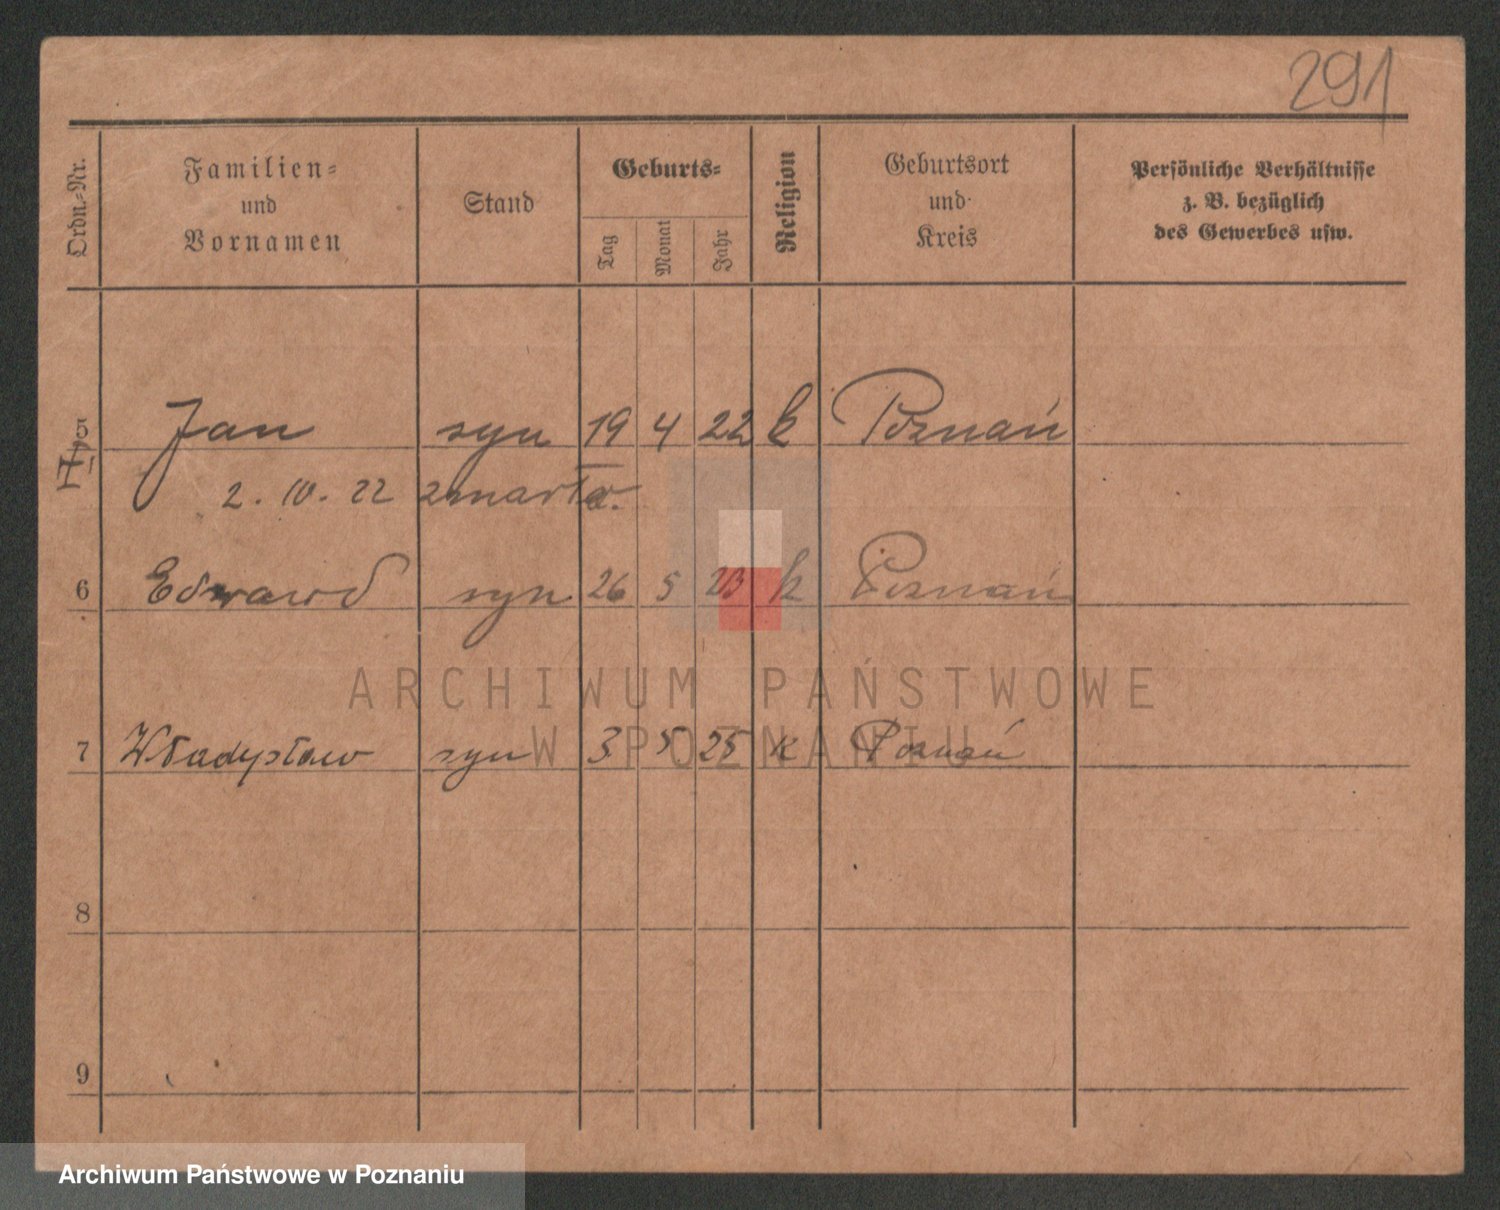 291
Ordn.-Nr.
Familien-
und
Vornamen
Stand
Geburts-
Tag
Monat
Jahr
Religion
Geburtsort
und
Kreis
Persönliche Verhältnisse
z. B. bezüglich
des Gewerbes usw.
5 Jan syn 19 4 22 k Poznań
2. 10. 22 zmarła.
6 Edward syn 26 5 23 k Poznań
ARCHIWUM PAŃSTWOWE
W POZNANIU
7 Władysław syn 3 5 25 k Poznań
8
9
Archiwum Państwowe w Poznaniu